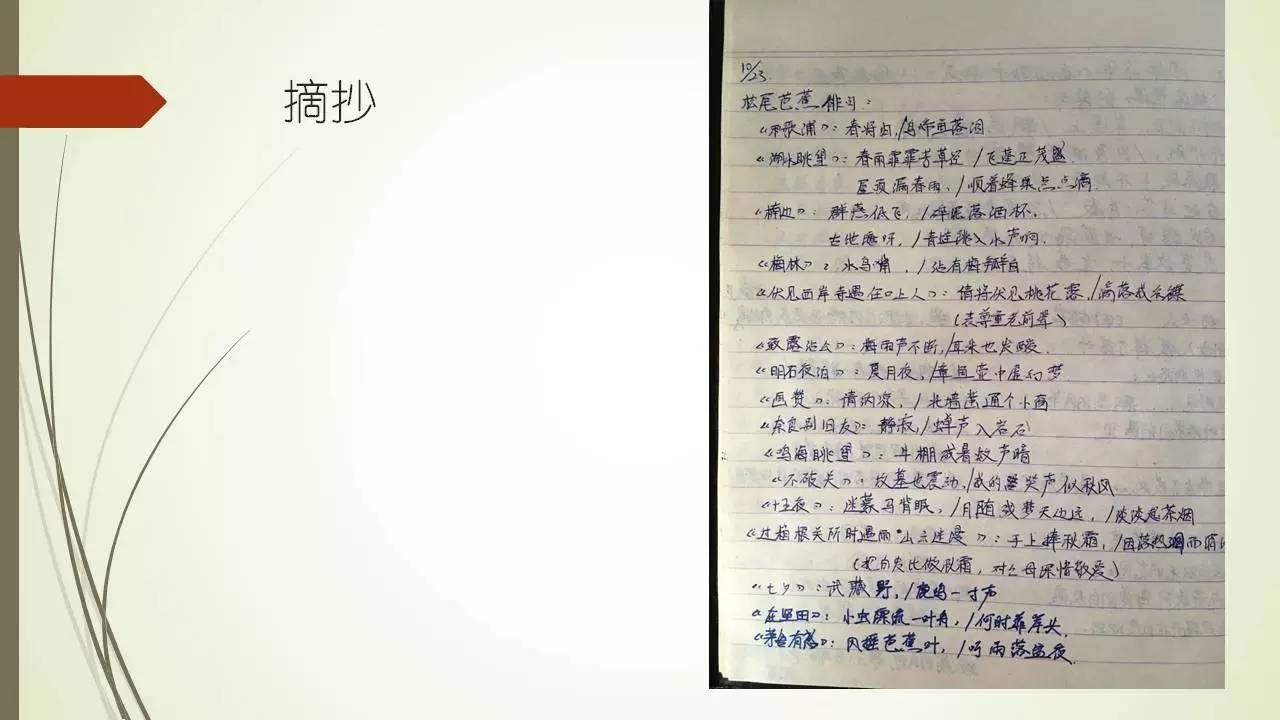 摘抄
10/23
松尾芭蕉俳句：
《和歌浦》：春将归，/鸟啼鱼落泪
《湖水眺望》：春雨霏霏芳草径/飞蓬正茂盛
屋顶漏春雨，/顺着蜂巢点点滴
《楠边》：群燕低飞，/碎泥落酒杯.
古池塘呀，/青蛙跳入水声响.
《梅林》：水鸟嘴，/沾有梅瓣白
《伏见西岸寺遇任口上人》：借将伏见桃花露，/滴落我衣襟
(表尊重老前辈)
《致露沾公》：梅雨声不断，/耳朵也发酸.
《明石夜泊》：夏月夜，/章鱼壶中虚幻梦.
《画赞》：请纳凉，/北墙凿通个小窗
《奈良别旧友》：静寂，/蝉声入岩石
《鸣海眺望》：牛棚成暑蚊声暗
《不破关》：坟墓也震动，/我的哭声似秋风
《十五夜》：迷蒙马背眠，/月随残梦天边远，/淡淡起茶烟
《过箱根关所时遇雨·山云连漫》：手上捧秋霜，/因落热泪而消
(把白发比做秋霜，对父母深情敬爱)
《七夕》：武藏野，/鹿鸣一寸声
《在坚田》：小虫漂流一叶舟，/何时靠岸头.
有感》：风摇芭蕉叶，/听雨落盆夜.